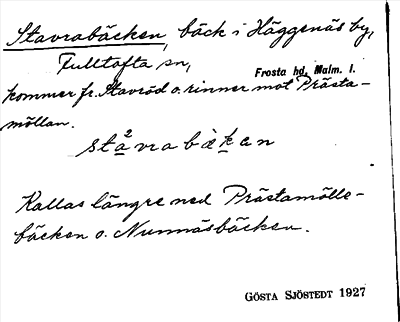 Stavrabäcken, bäck i Häggenäs by,
Fulltofta sn,
Frosta hd, Malm. l.
kommer fr. Stavröd o. rinner mot Prästa-
möllan.
Kallas längre ned Prästamölle-
bäcken o. Nunnäsbäcken.
GÖSTA SJÖSTEDT 1927